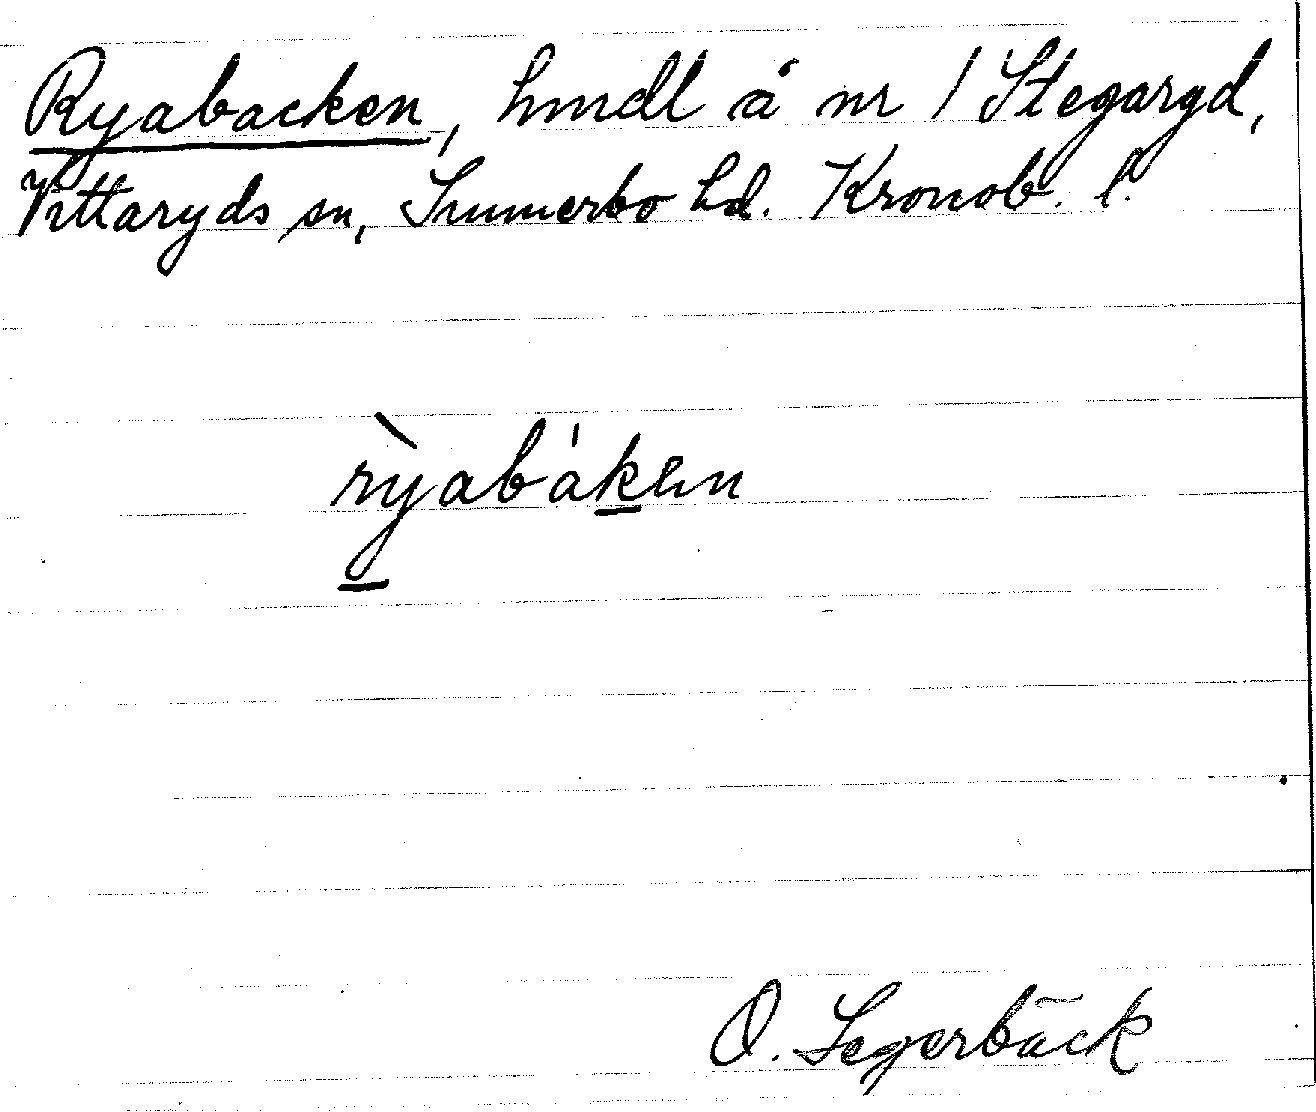 Ryabacken, hmdl å nr 1 Stegaryd,
Vittaryds sn, Sunnerbo hd. Kronob. l.
rỳabáken
O. Segerbäck